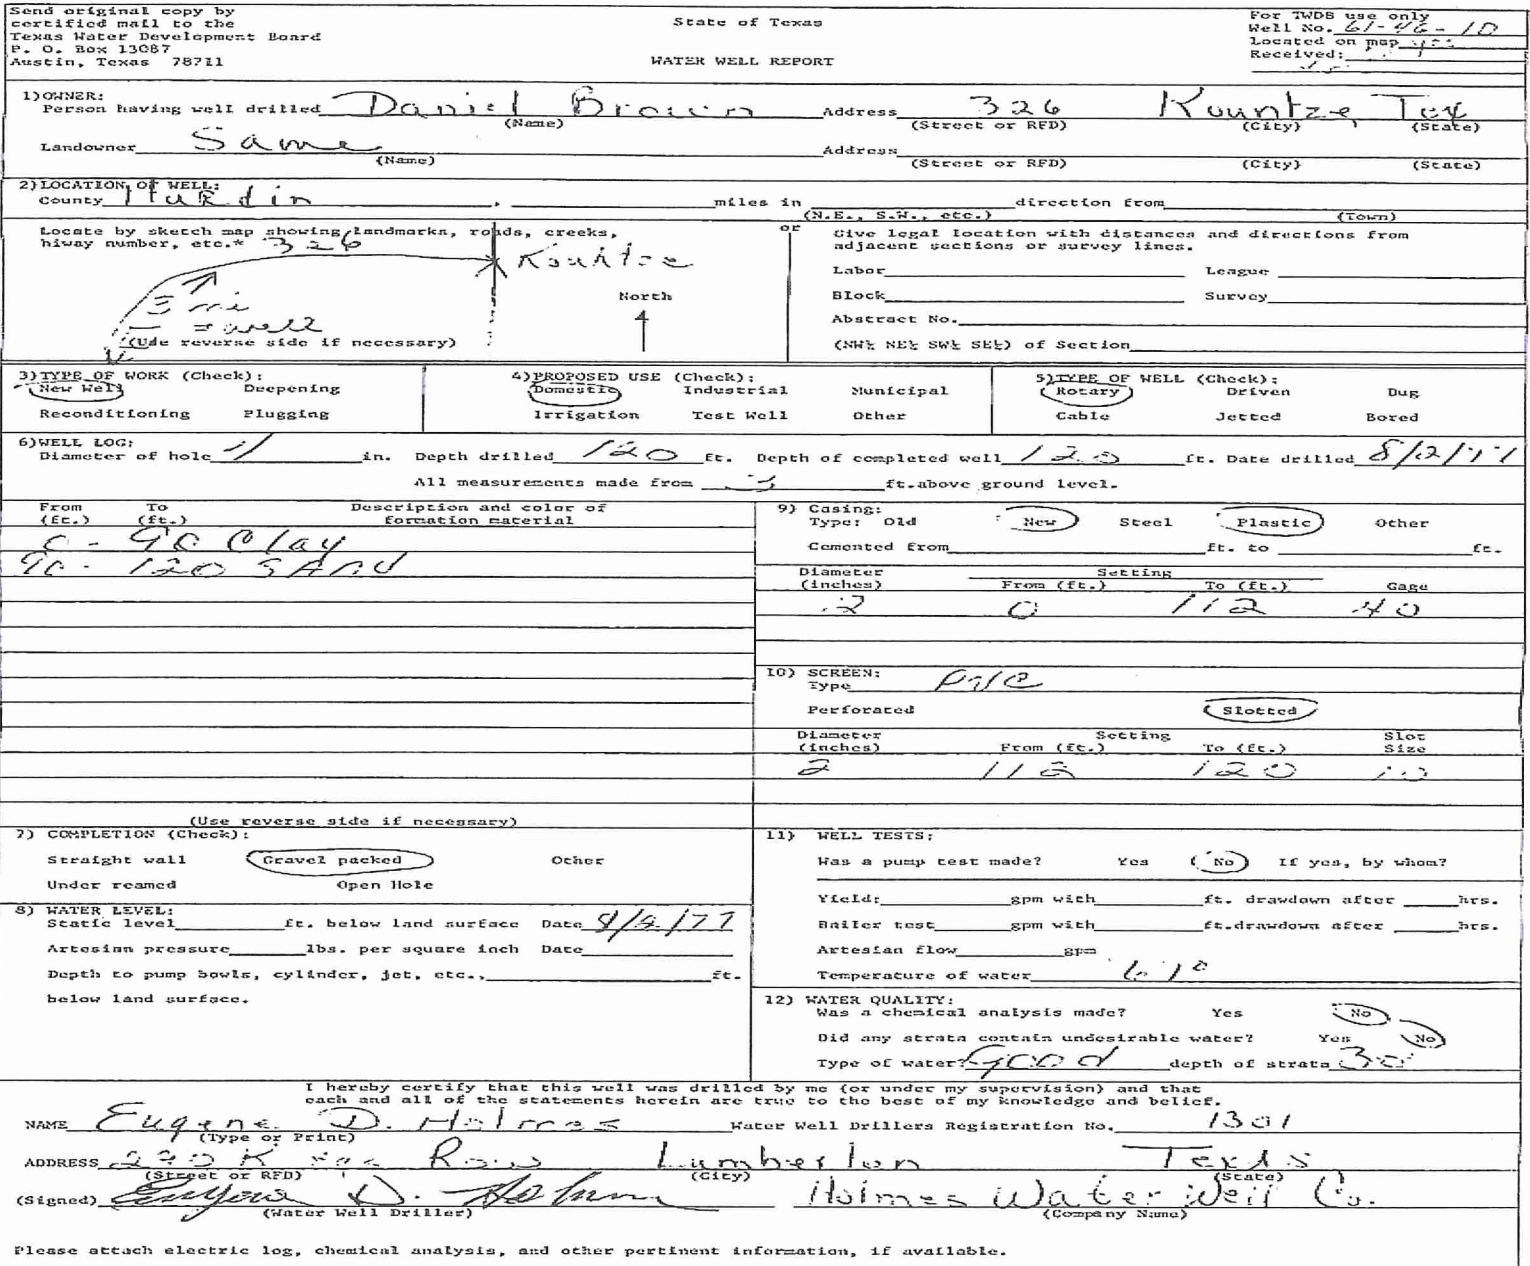 Send original copy by
certified mail to the
Texas Water Development Board
P. O. Box 13087
Austin, Texas 78711
State of Texas
WATER WELL REPORT
For TWDB use only
Well No. 61-46-10
Located on map yes
Received:
1) OWNER:
Person having well drilled Daniel Brown Address 326 Kountze, Tex
(Name) (Street or RFD) (City) (State)
Landowner Same Address
(Name) (Street or RFD) (City) (State)
2) LOCATION OF WELL:
County Hardin , miles in direction from
(N.E., S.W., etc.) (Town)
Locate by sketch map showing landmarks, roads, creeks,
hiway number, etc.* 326
Kountze
mi
well
North
(Use reverse side if necessary)
or
Give legal location with distances and directions from
adjacent sections or survey lines.
Labor League
Block Survey
Abstract No.
(NW¼ NE¼ SW¼ SE¼) of Section
3) TYPE OF WORK (Check):
New Well Deepening
Reconditioning Plugging
4) PROPOSED USE (Check):
Domestic Industrial Municipal
Irrigation Test Well Other
5) TYPE OF WELL (Check):
Rotary Driven Dug
Cable Jetted Bored
6) WELL LOG:
Diameter of hole in. Depth drilled 120 ft. Depth of completed well 120 ft. Date drilled 8/2/77
All measurements made from ft.above ground level.
From (ft.) To (ft.) Description and color of formation material
0 - 90 Clay
90 - 120 SAnd
(Use reverse side if necessary)
9) Casing:
Type: Old New Steel Plastic Other
Cemented from ft. to ft.
Diameter (inches) Setting From (ft.) To (ft.) Gage
2 0 112 40
10) SCREEN:
Type PVC
Perforated Slotted
Diameter (inches) Setting From (ft.) To (ft.) Slot Size
2 112 120 10
7) COMPLETION (Check):
Straight wall Gravel packed Other
Under reamed Open Hole
8) WATER LEVEL:
Static level ft. below land surface Date 8/2/77
Artesian pressure lbs. per square inch Date
Depth to pump bowls, cylinder, jet, etc., ft.
below land surface.
11) WELL TESTS:
Was a pump test made? Yes No If yes, by whom?
Yield: gpm with ft. drawdown after hrs.
Bailer test gpm with ft.drawdown after hrs.
Artesian flow gpm
Temperature of water
12) WATER QUALITY:
Was a chemical analysis made? Yes No
Did any strata contain undesirable water? Yes No
Type of water? Good depth of strata 30
I hereby certify that this well was drilled by me (or under my supervision) and that
each and all of the statements herein are true to the best of my knowledge and belief.
NAME Eugene D. Holmes Water Well Drillers Registration No. 1301
(Type or Print)
ADDRESS Row Lumberton Texas
(Street or RFD) (City) (State)
(Signed) Eugene D. Holmes Holmes Water Well Co.
(Water Well Driller) (Company Name)
Please attach electric log, chemical analysis, and other pertinent information, if available.